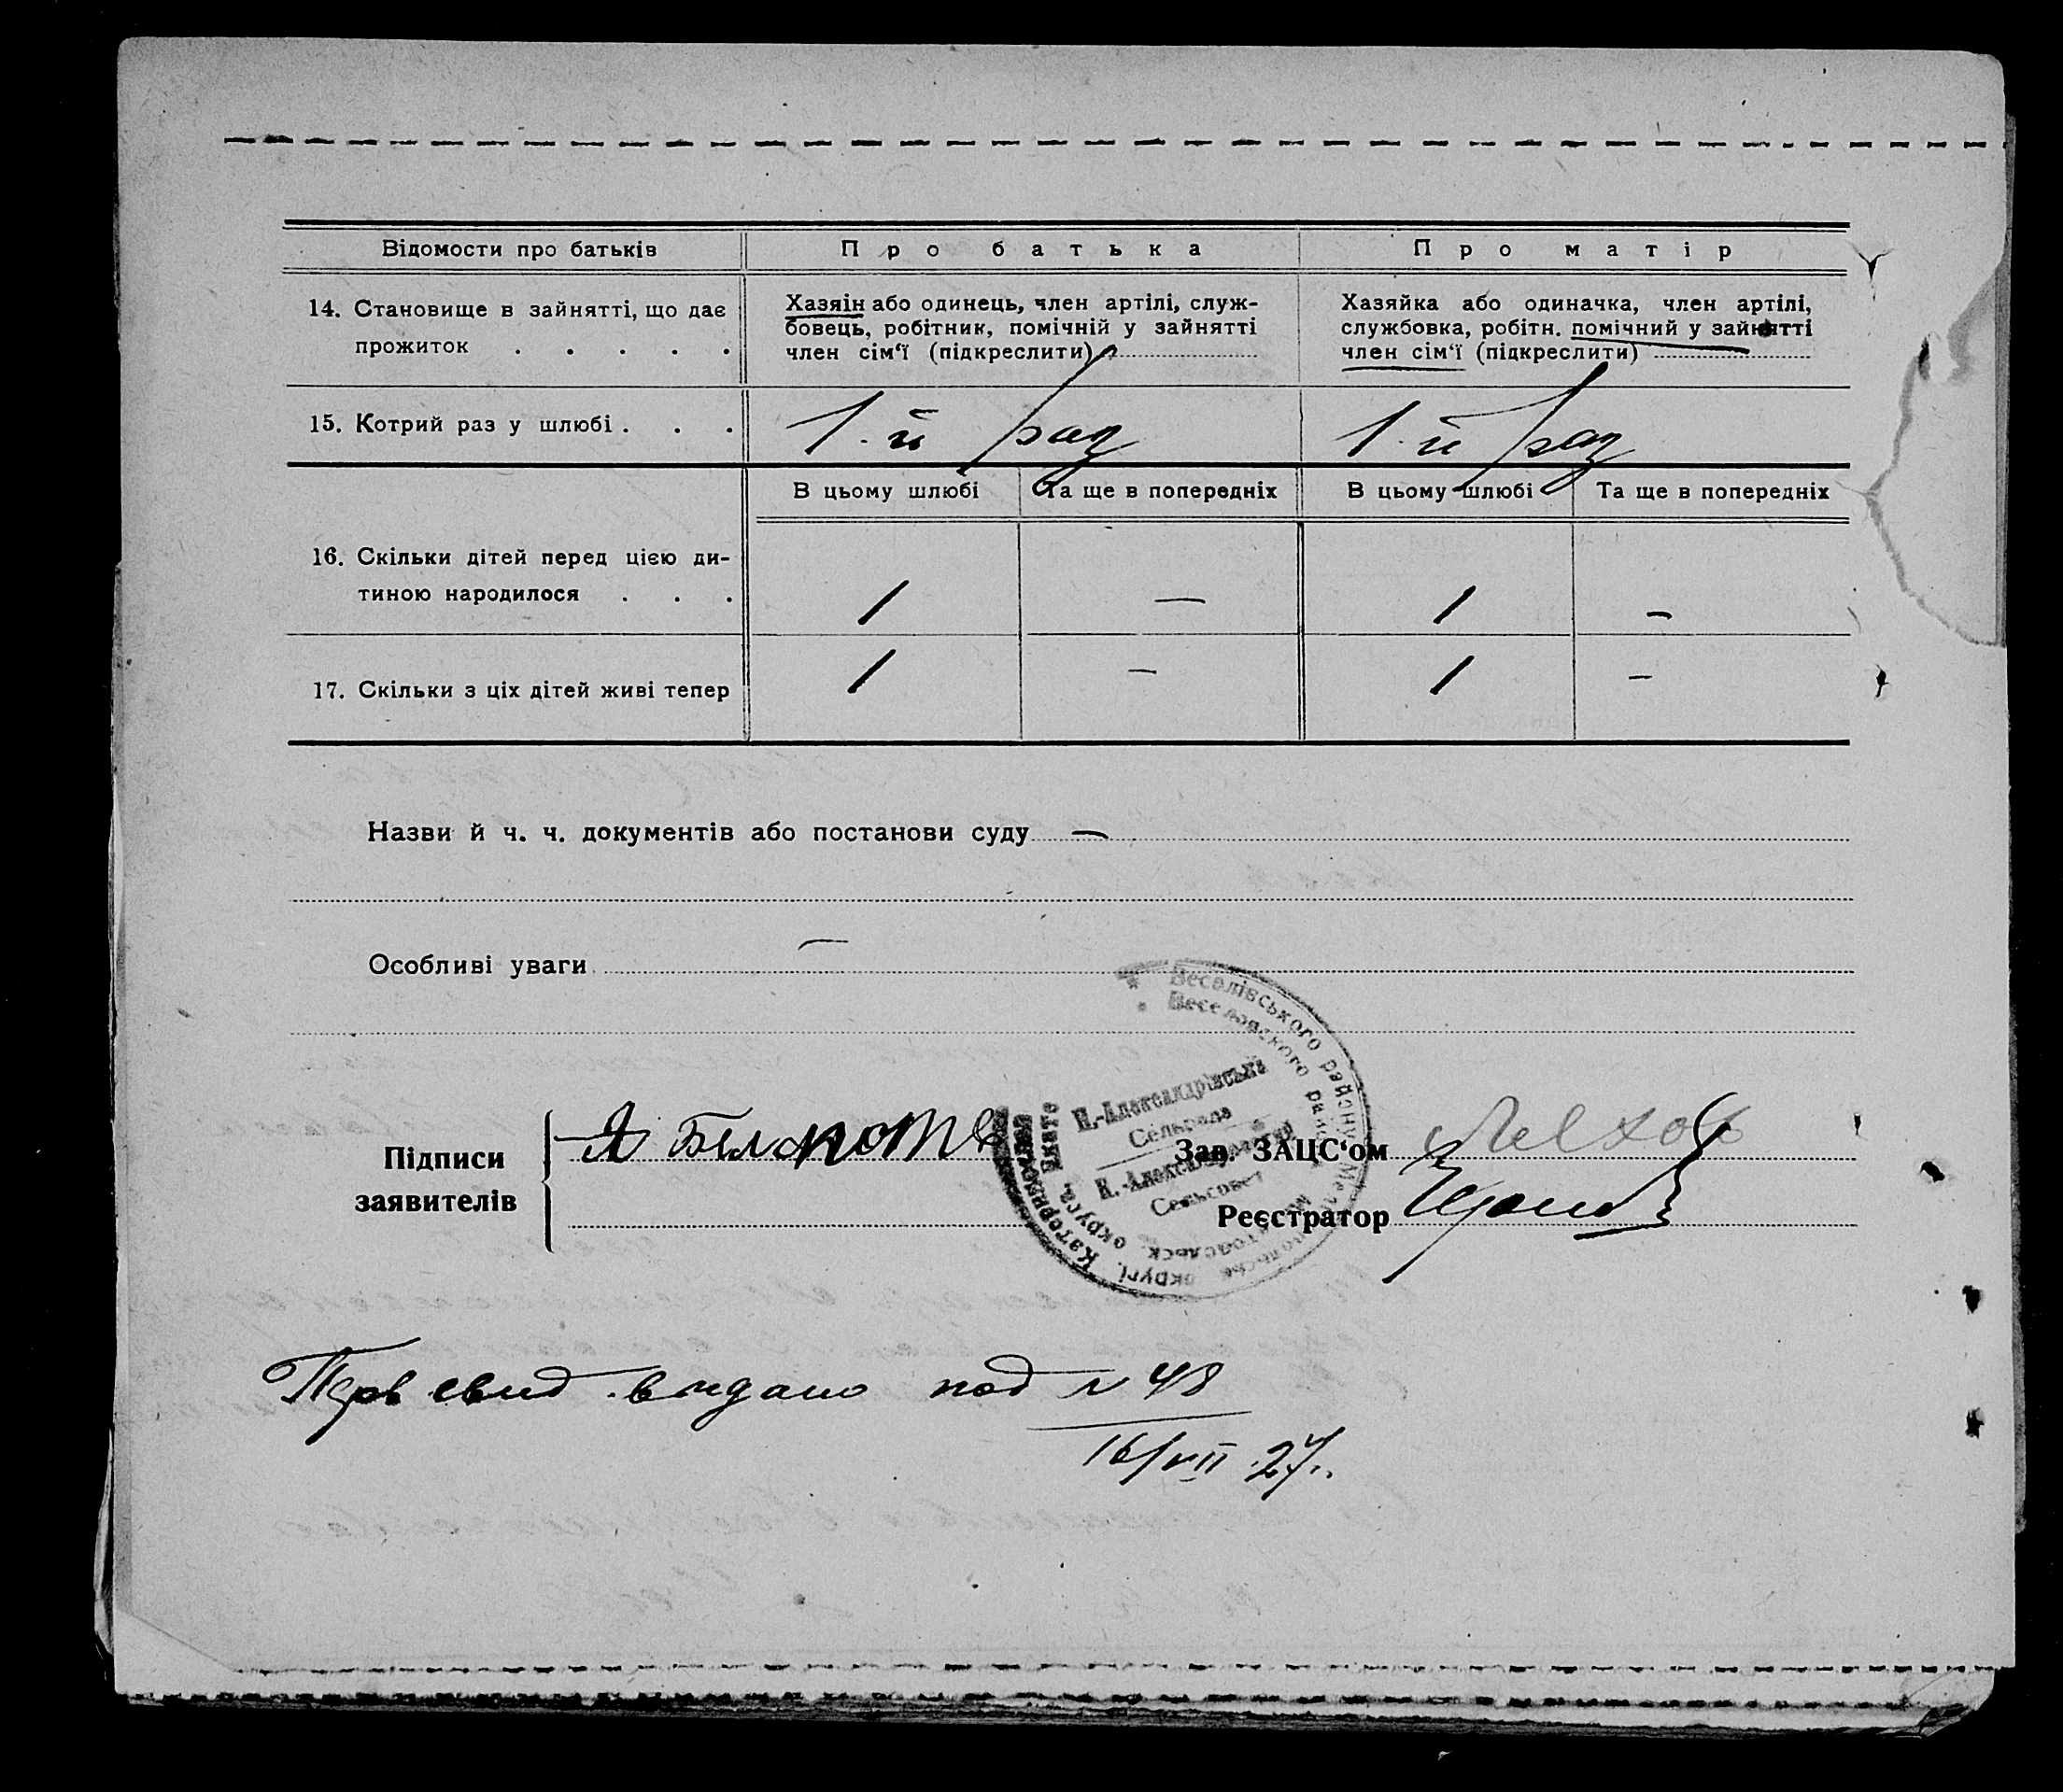 Відомости про батьків
Про батька
Про матір
14. Становище в зайнятті, що дає
прожиток . . . . .
Хазяін або одинець, член артілі, служ-
бовець, робітник, помічній у зайнятті
член сім‘ї (підкреслити)
Хазяйка або одиначка, член артілі,
службовка, робітн. помічний у зайнятті
член сім‘ї (підкреслити)
15. Котрий раз у шлюбі . . .
1-й раз
1-й раз
В цьому шлюбі
Та ще в попередніх
В цьому шлюбі
Та ще в попередніх
16. Скільки дітей перед цією ди-
тиною народилося . . .
1
—
1
—
17. Скільки з ціх дітей живі тепер
1
—
1
—
Назви й ч. ч. документів або постанови суду —
Особливі уваги —
Веселівського району
Веселовского
Н.-Александрівська
Сельрада
Н.-Александровский
Сельсовет
Підписи
заявителів
Я
Зав. ЗАЦС‘ом
Реєстратор
Перв свид выдано под № 48
16/VII 27.